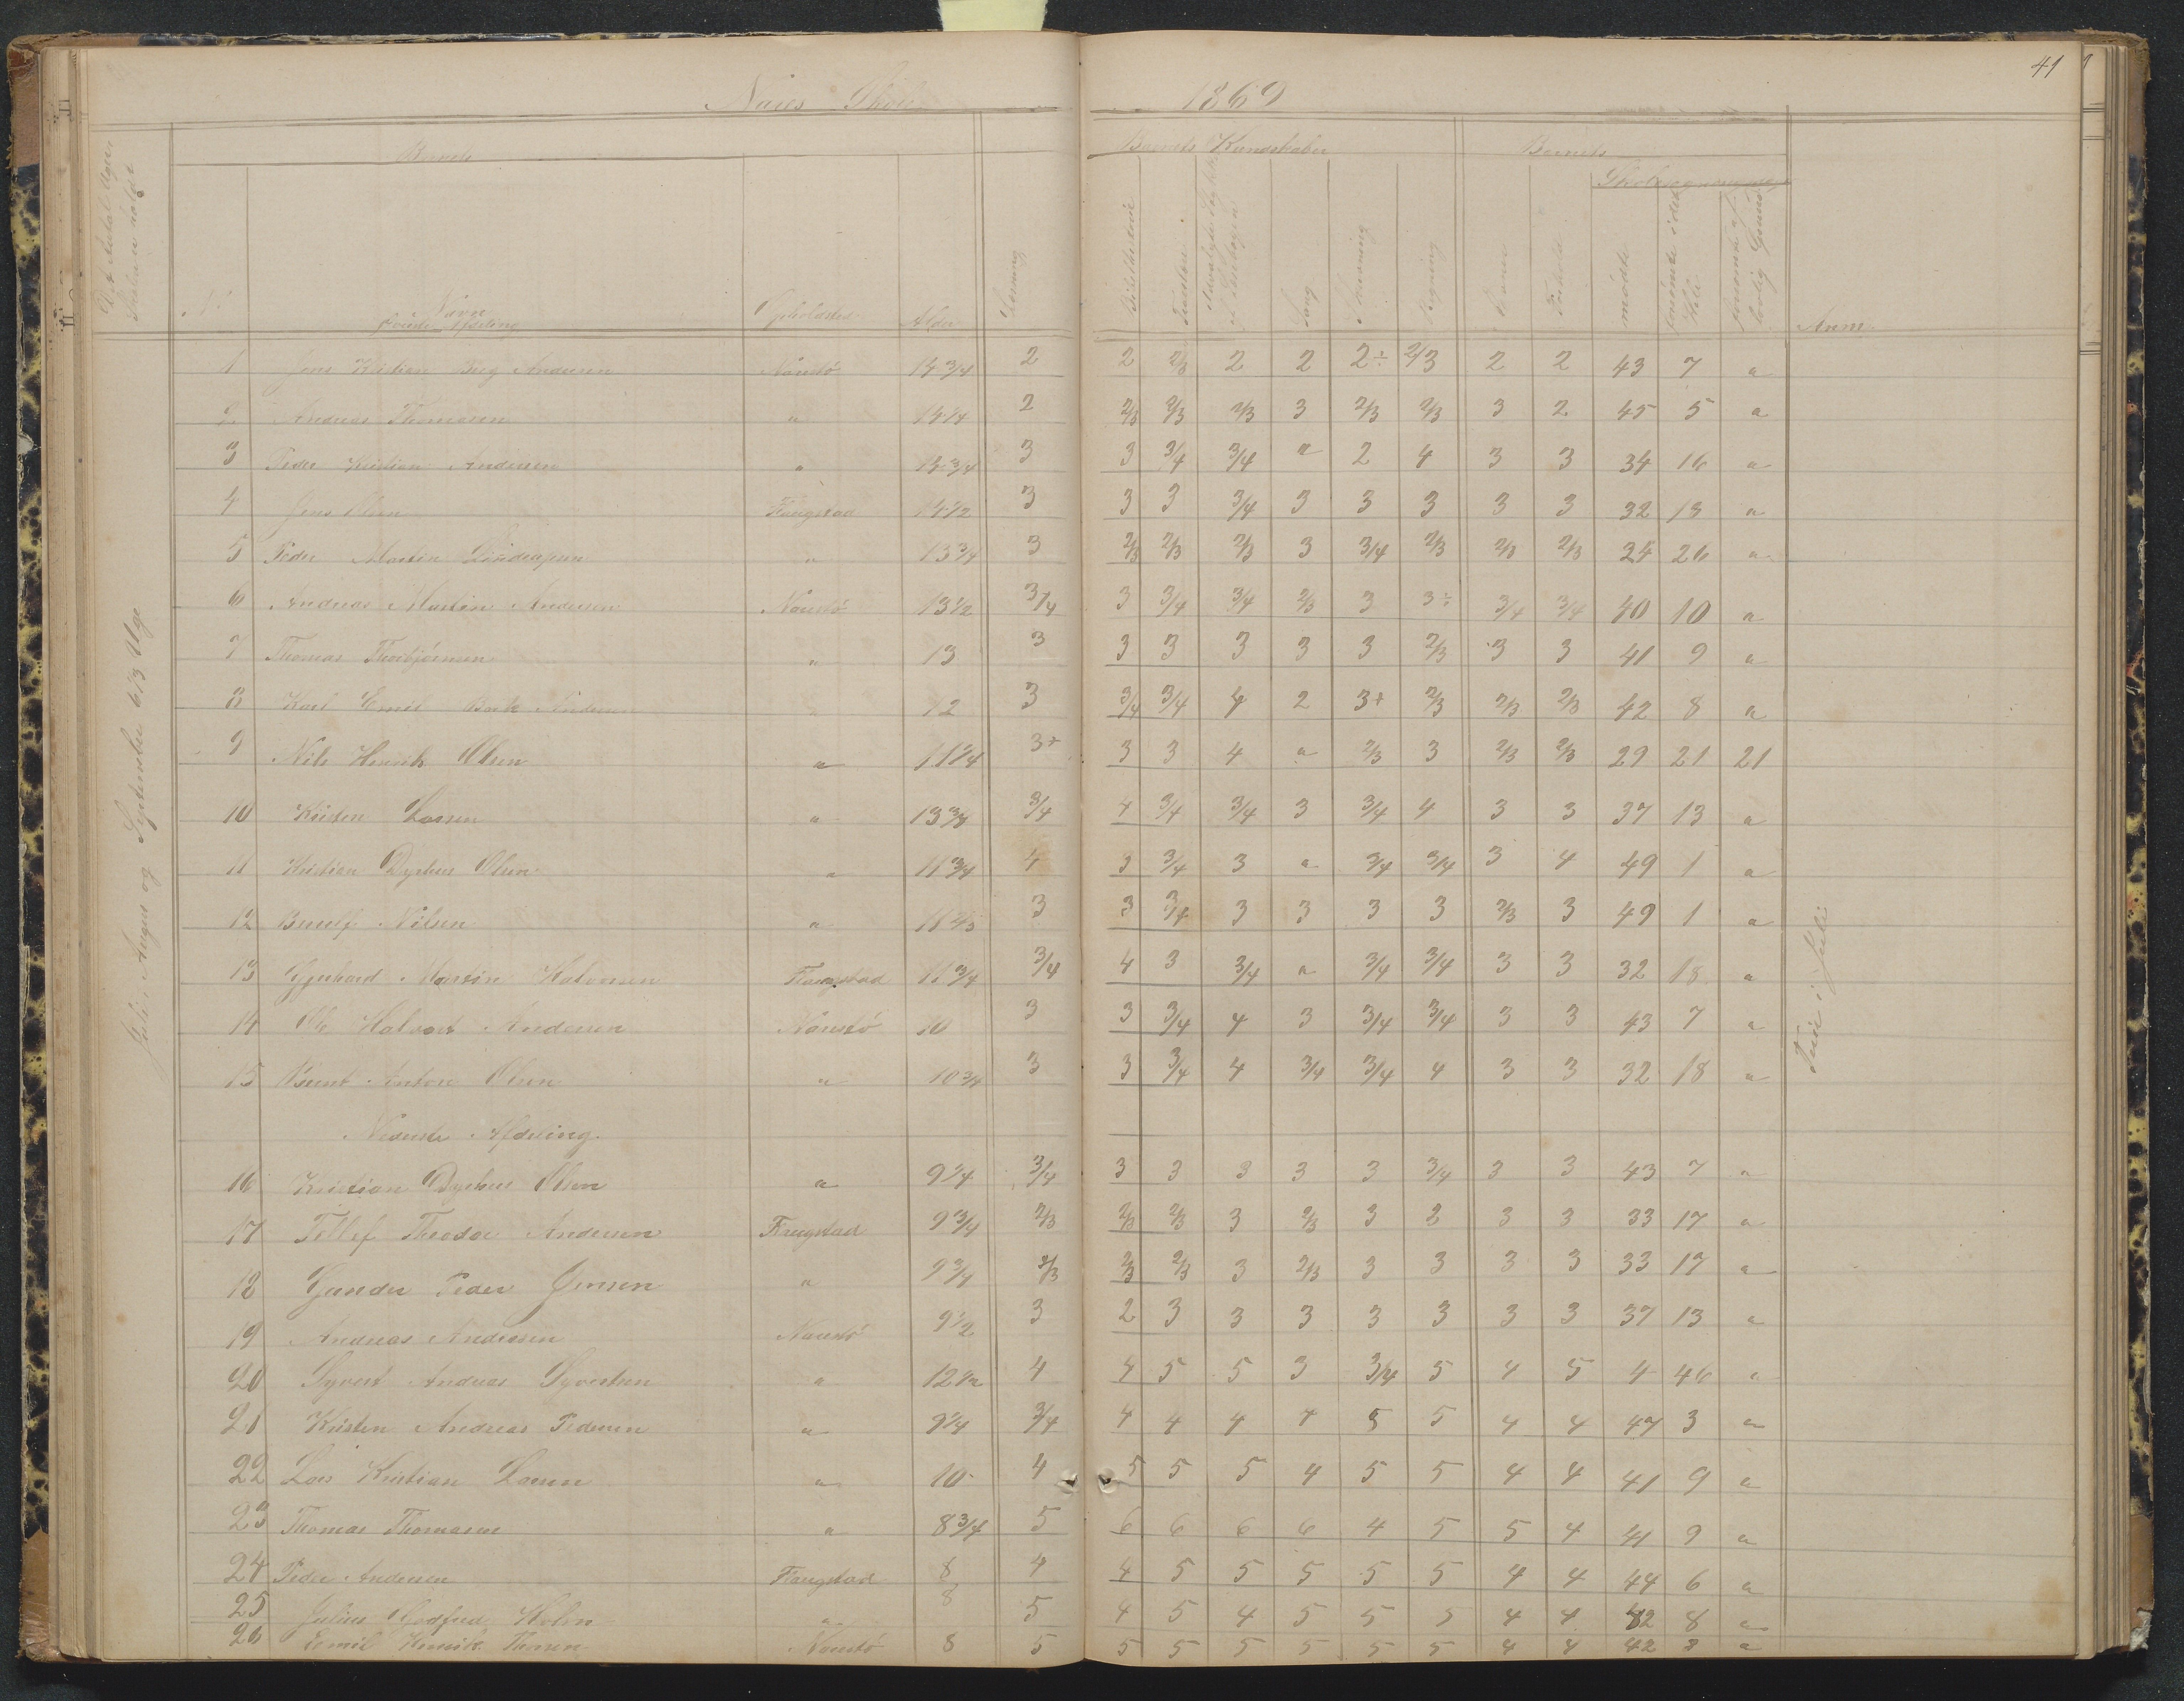 41
Skole 1869
Barnets
Barnets Kundskaber
Barnets
Det Antal Uger Skolen holdt
Navn Opholdssted Alder Læsning Bibelhistorie Troeslære Udvalgte Stykker af Læsebogen Sang Skrivning Regning Evner Forhold mødte forsømte i det Hele forsømte af lovlig Grund Anm.
Øverste Afdeling
1 Jens Kristian Berg Andersen Narestø 14 3/4 2 2 2/3 2 2 2÷ 2/3 2 2 43 7 "
2 Andreas Thomasen " 14 1/4 2 2/3 2/3 2/3 3 2/3 2/3 3 2 45 5 "
3 Peder Kristian Andersen " 14 3/4 3 3 3/4 3/4 " 2 4 3 3 34 16 "
4 Jens Olsen Flangstad 14 1/2 3 3 3 3/4 3 3 3 3 3 32 18 "
5 Peder Martin " 13 3/4 3 2/3 2/3 2/3 3 3/4 2/3 2/3 2/3 24 26 "
6 Andreas Martin Andersen Narestø 13 1/2 3/4 3 3/4 3/4 2/3 3 3÷ 3/4 3/4 40 10 "
7 Thomas Thorbjørnsen " 13 3 3 3 3 3 3 2/3 3 3 41 9 "
8 Karl Emil Andersen " 12 3 3/4 3/4 4 2 3+ 2/3 2/3 2/3 42 8 "
9 Nils Henrik Olsen " 11 1/4 3+ 3 3 4 " 2/3 3 2/3 2/3 29 21 21
10 Kristen Larsen " 13 3/4 3/4 4 3/4 3/4 3 3/4 4 3 3 37 13 "
11 Kristian Dyrhus Olsen " 11 3/4 4 3 3/4 3 " 3/4 3/4 3 4 49 1 "
12 Nilsen " 3 3 3/4 3 3 3 3 2/3 3 49 1 "
13 Martin Halvorsen Flangstad 11 3/4 3/4 4 3 3/4 " 3/4 3/4 3 3 32 18 "
14 Ole Halvor Andersen Narestø 10 3 3 3/4 4 3 3/4 3/4 3 3 43 7 "
15 Bernt Anton Olsen " 10 3/4 3 3 3/4 4 3/4 3/4 4 3 3 32 18 "
Nederste Afdeling.
16 Kristian Dyrhus Olsen " 9 1/4 3/4 3 3 3 3 3 3/4 3 3 43 7 "
17 Tellef Theodor Andersen Flangstad 9 3/4 2/3 2/3 2/3 3 2/3 3 2 3 3 33 17 "
18 Gunder Peder Jensen " 9 3/4 2/3 2/3 2/3 3 2/3 3 3 3 3 33 17 "
19 Andreas Andersen Narestø 9 1/2 3 2 3 3 3 3 3 3 3 37 13 "
20 Syvert Andreas Syvertsen " 12 1/2 4 4 5 5 3 3/4 5 4 5 4 46 "
21 Kristen Andreas Pedersen " 9 1/4 3/4 4 4 4 4 5 5 4 4 47 3 "
22 Lars Kristian Larsen " 10 4 5 5 5 4 5 5 4 4 41 9 "
23 Thomas Thomasen " 8 3/4 5 6 6 6 6 4 5 5 4 41 9 "
24 Peder Andersen Flangstad 8 4 4 5 5 5 5 5 4 4 44 6 "
25 Julius Godfred Holm " 8 5 4 5 4 5 5 5 4 4 42 8 "
26 Emil Henrik Narestø 8 5 5 5 5 5 5 5 4 4 42 8 "
Juli, August og September 6 1/3 Uge
Ferie i Juli